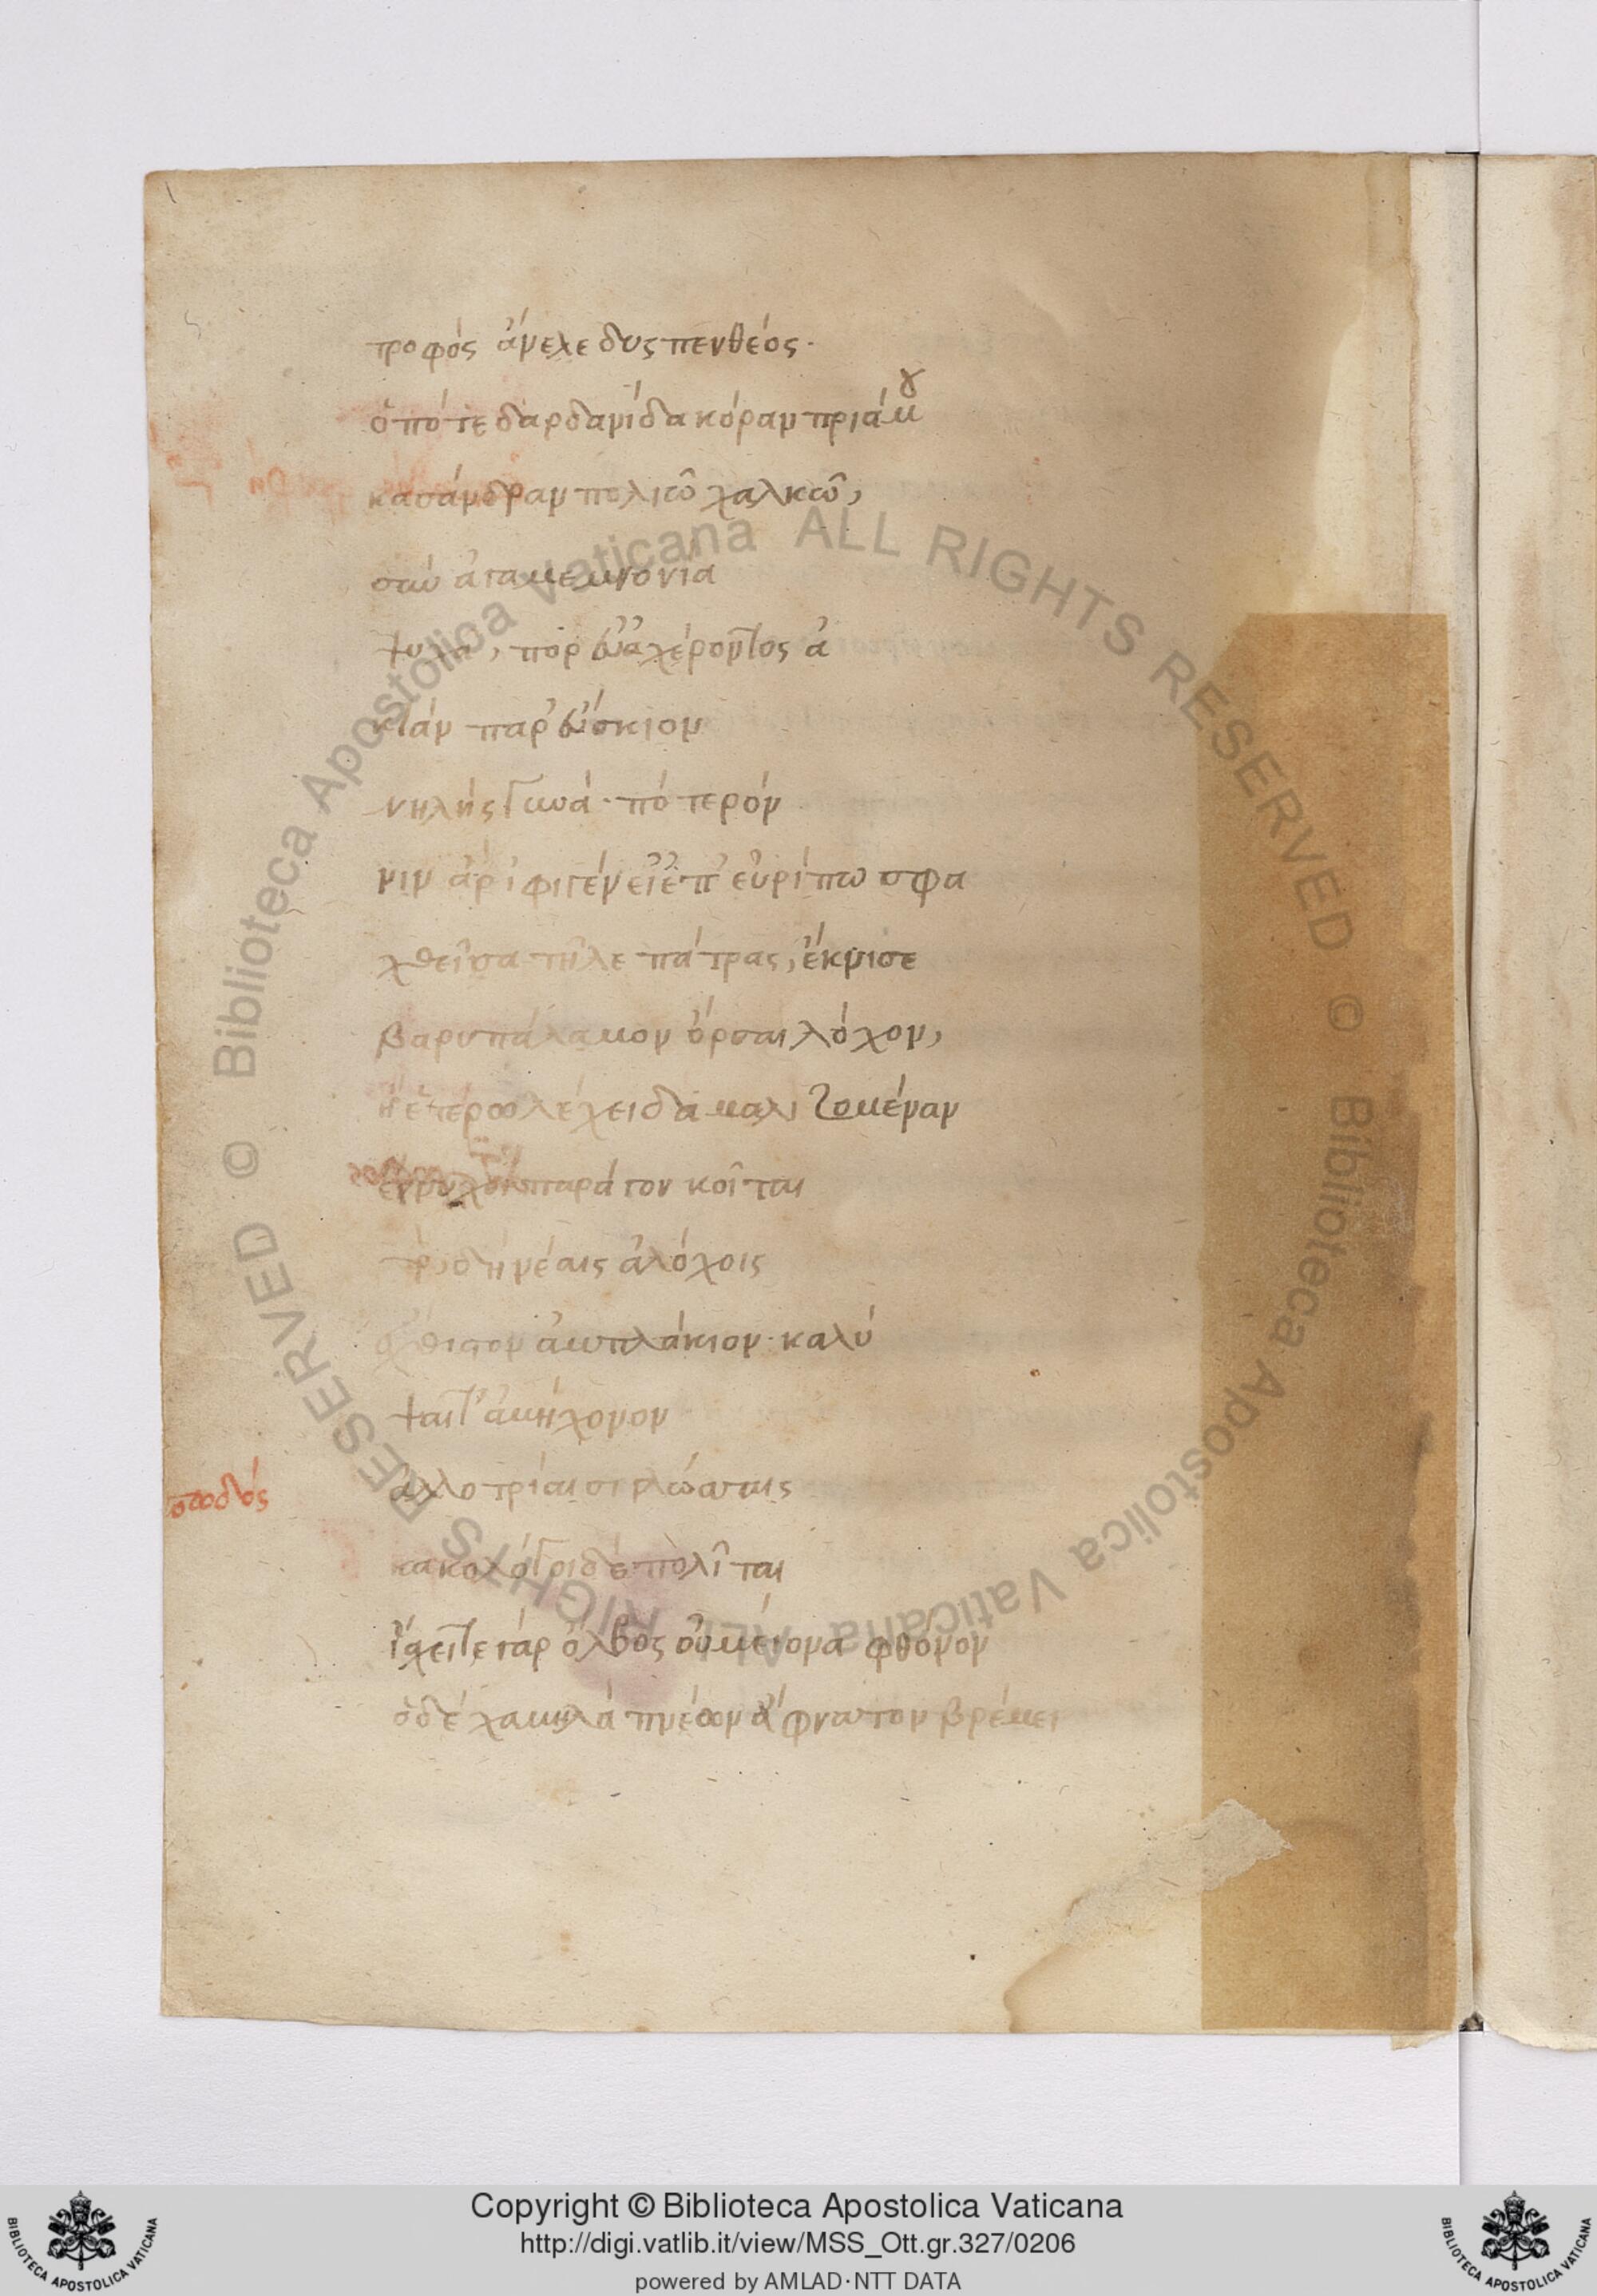 τροφός ἄνελε δυσπενθέος·
ὁπότε δαρδανίδα κόραν πριάμου
κασάνδραν πολιῶ χαλκῶ,
σὺν ἀγαμεμνονία
ψυχᾶ, πόρευσ' ἀχέροντος ἀ
κτὰν παρ' εὔσκιον
νηλὴς γυνά· πότερόν
νιν ἄρ' ἰφιγένει' ἐπ' εὐρίπω σφα
χθεῖσα τῆλε πάτρας, ἔκνισε
βαρυπάλαμον ὄρσαι λόχον,
ἢ ἑτέρω λέχει δαμαλιζομέναν
ἔννυχοι πάραγον κοῖται
τὸ δὲ νέαις ἀλόχοις
ἔχθιστον ἀμπλάκιον· καλύ
ψαι τ' ἀμήχανον
ἐπωδός
ἀλλοτρίαισι γλώσσαις
κακολόγοι δὲ πολῖται
ἴσχει τε γὰρ ὄλβος οὐ μείονα φθόνον
ὁ δὲ χαμηλὰ πνέων ἄφαντον βρέμει
© Biblioteca Apostolica Vaticana ALL RIGHTS RESERVED © Biblioteca Apostolica Vaticana ALL RIGHTS RESERVED
Copyright © Biblioteca Apostolica Vaticana
http://digi.vatlib.it/view/MSS_Ott.gr.327/0206
powered by AMLAD·NTT DATA
BIBLIOTECA APOSTOLICA VATICANA
BIBLIOTECA APOSTOLICA VATICANA